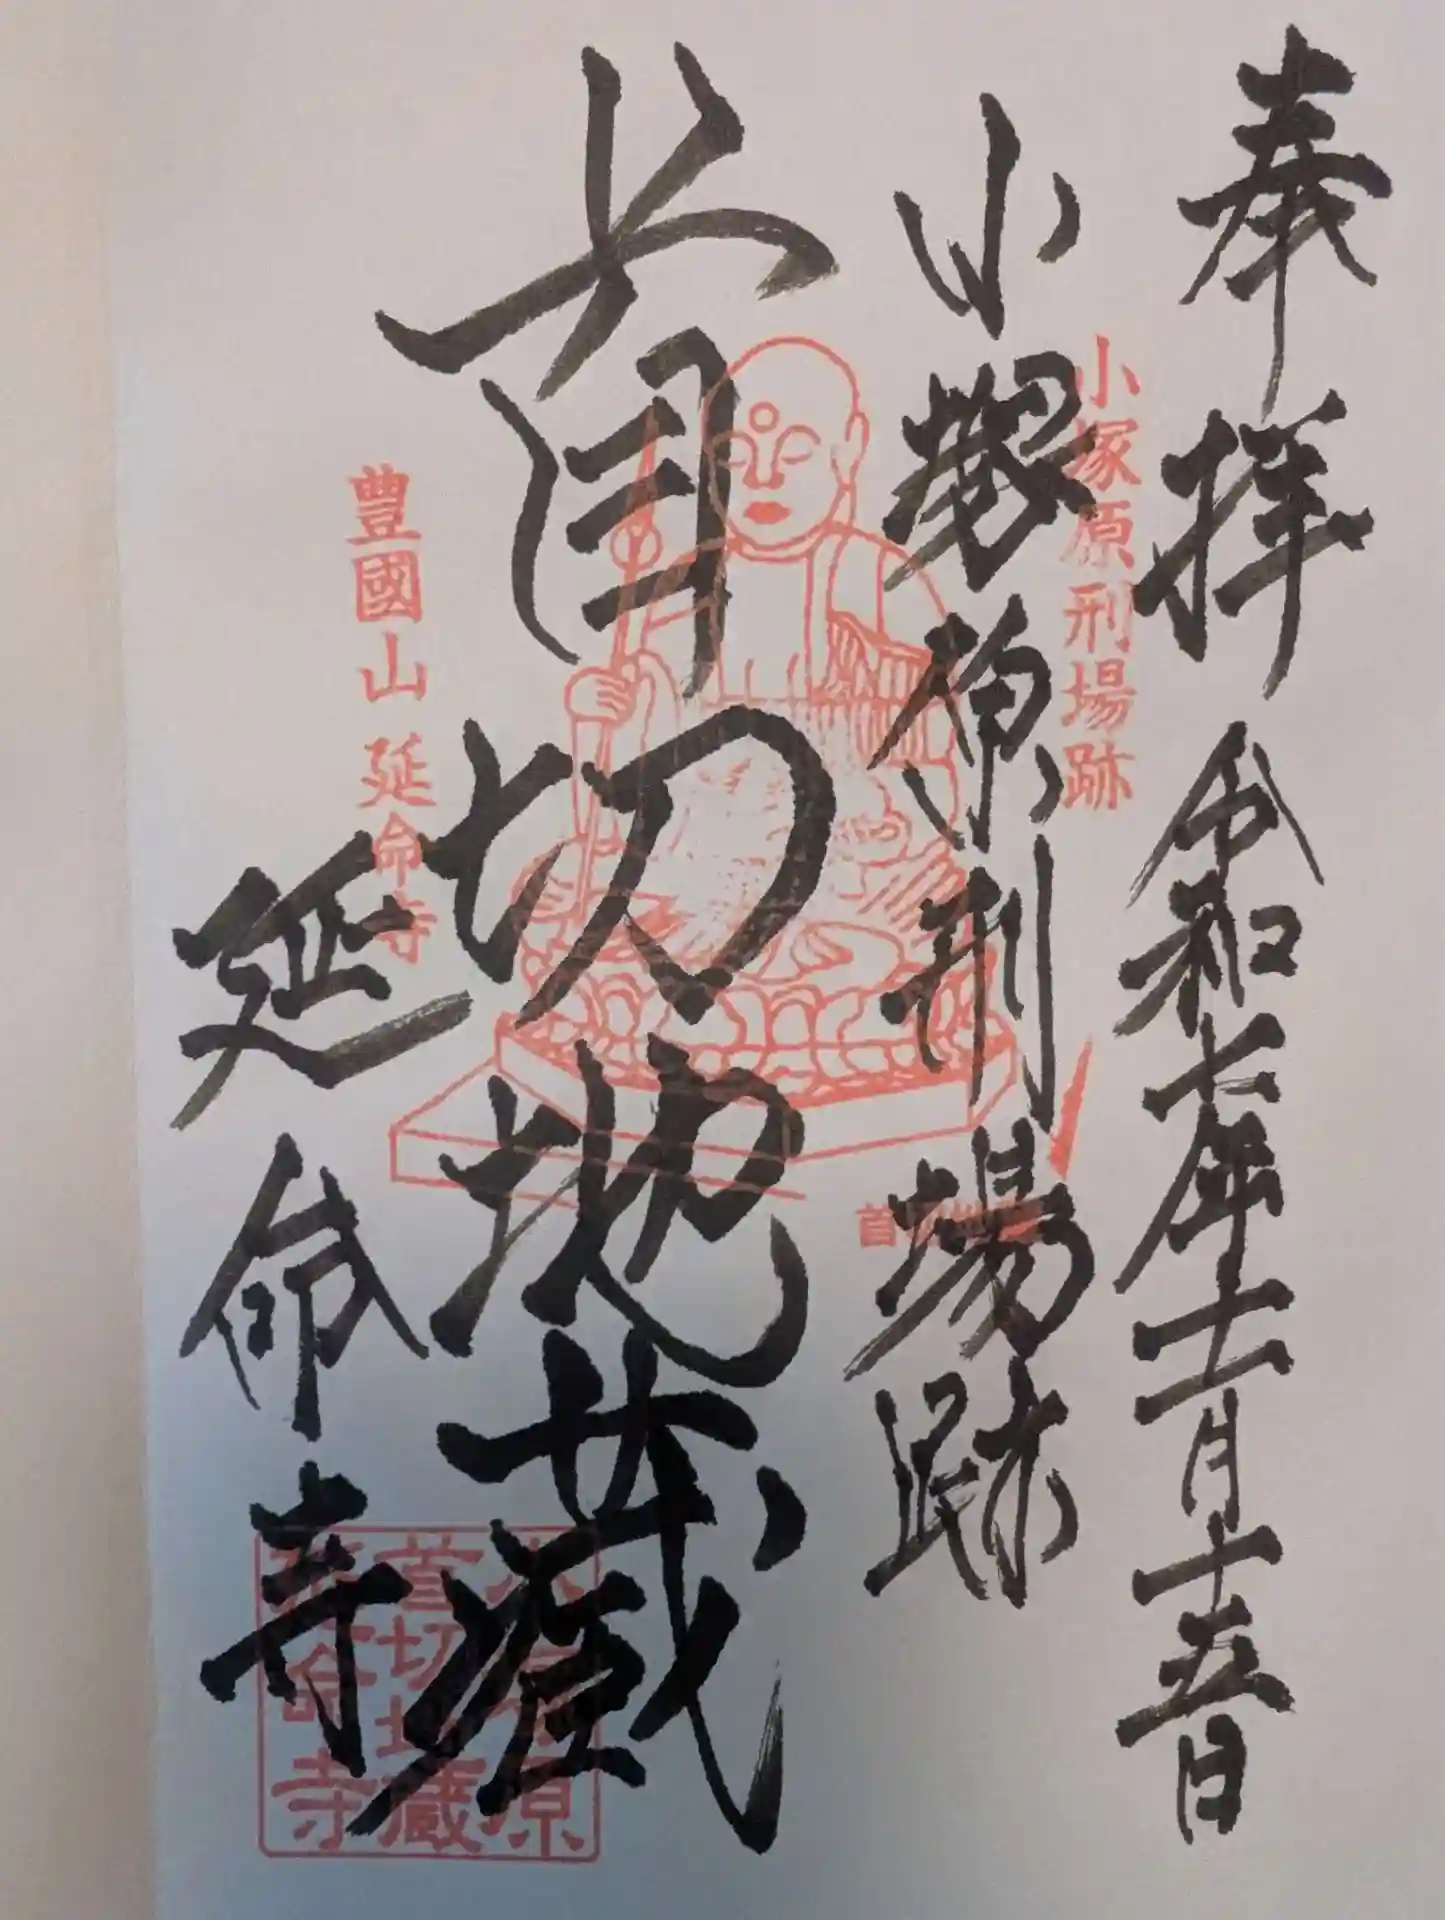 奉拝 令和七年十一月十五日
小塚原刑場跡
小塚原刑場跡
首切地蔵
首切地蔵
豊國山 延命寺
延命寺
小塚原
首切地蔵
延命寺